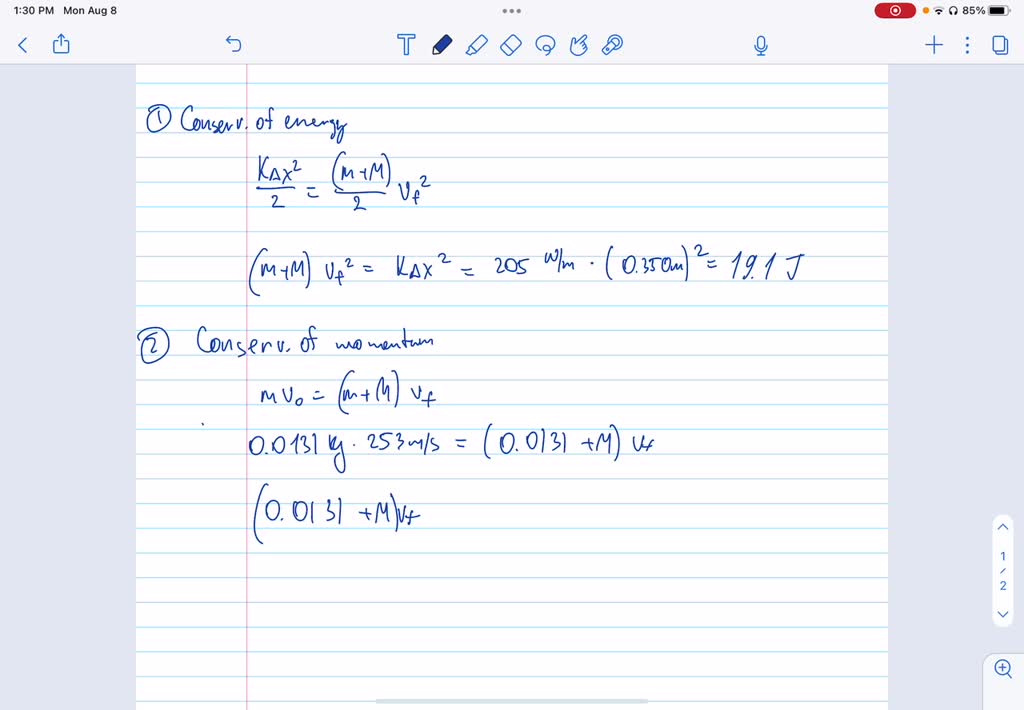 1:30 PM Mon Aug 8
85%
T
① Conserv. of energy
KΔx²/2 = (m+M)/2 Vf²
(m+M) Vf² = KΔx² = 205 N/m · (0.350m)² = 19.1 J
② Conserv. of momentum
mV₀ = (m+M) Vf
0.0131 kg · 253 m/s = (0.0131 +M) Vf
(0.0131 +M)Vf
1
/
2